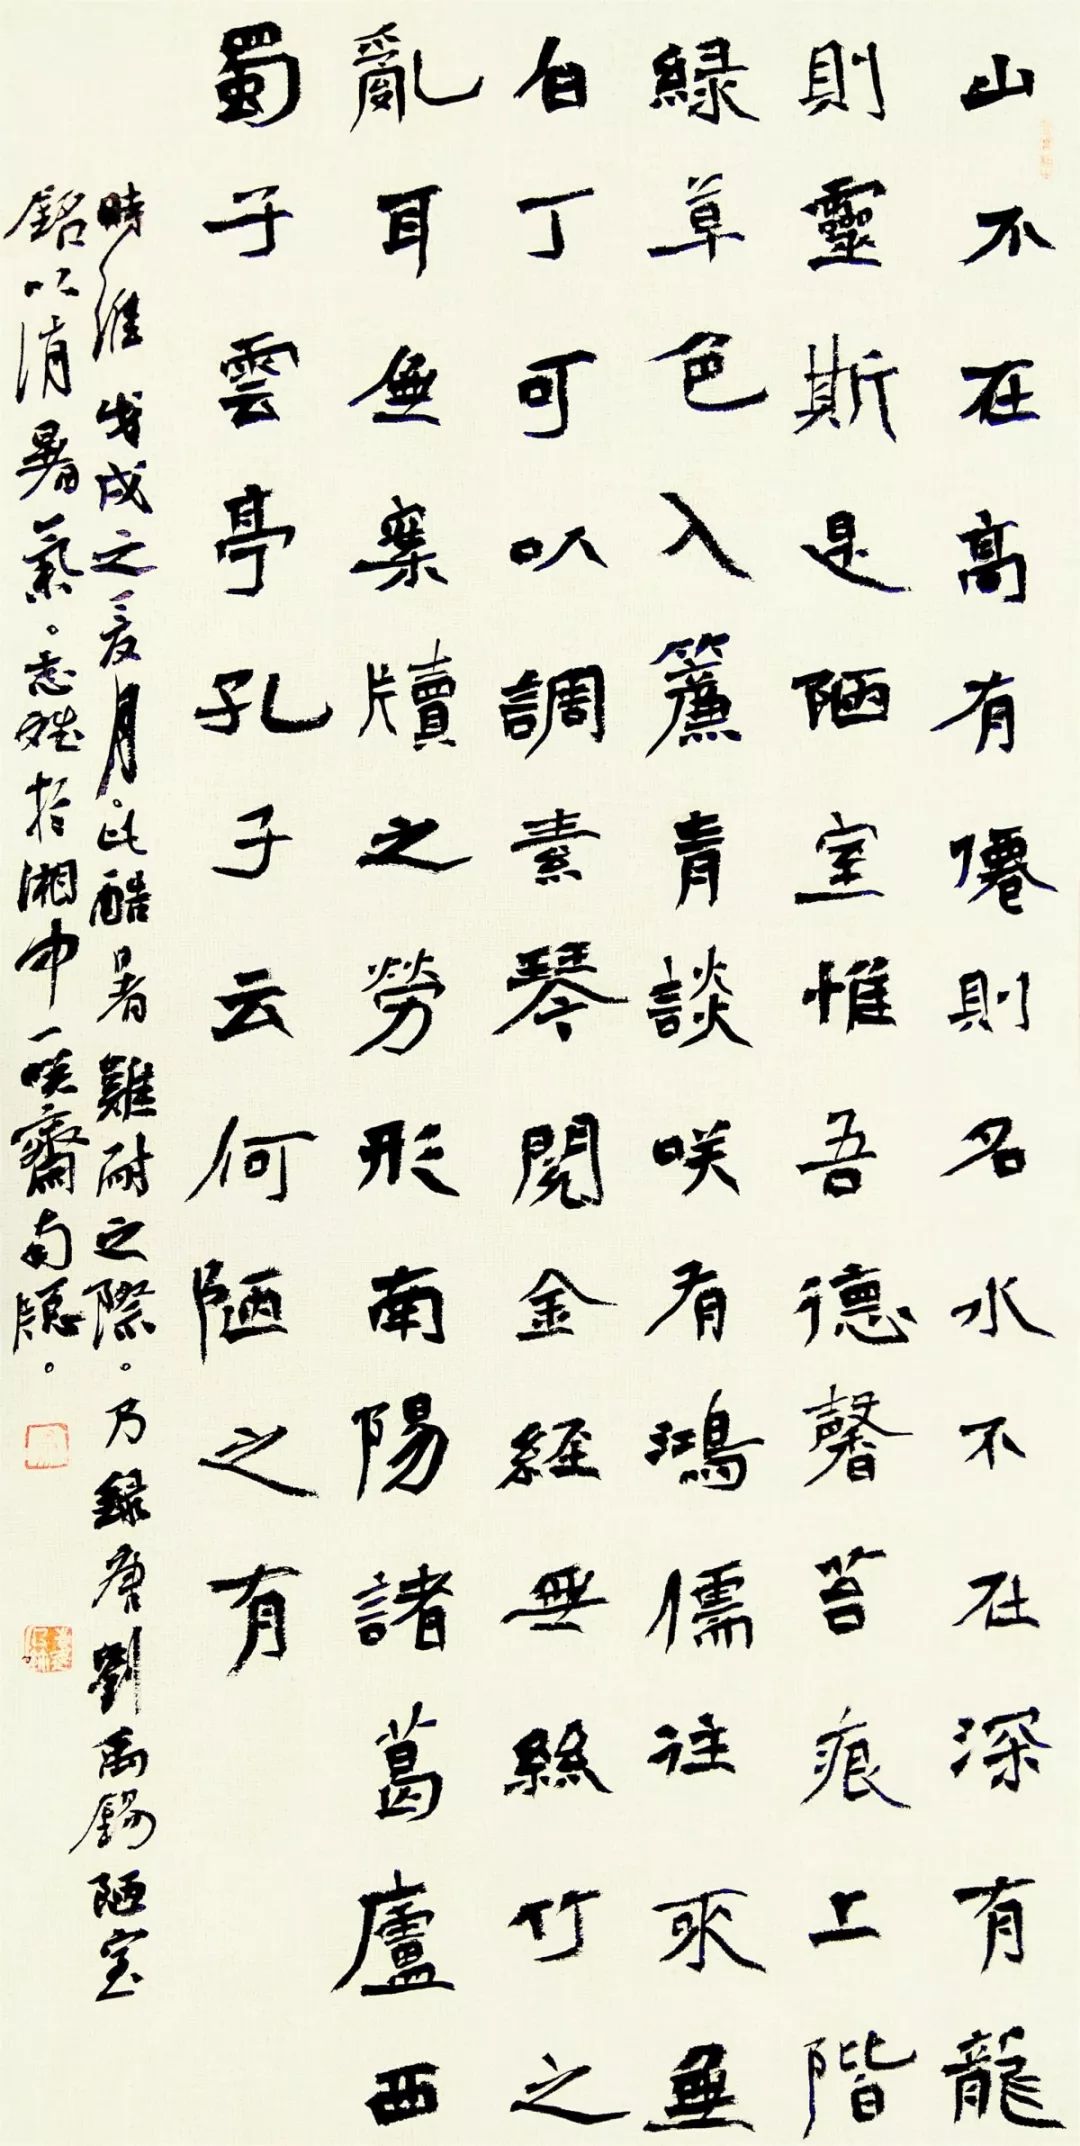 山不在高有僊則名水不在深有龍
則靈斯是陋室惟吾德馨苔痕上階
緑草色入簾青談咲有鴻儒往來無
白丁可以調素琴閲金經無絲竹之
亂耳無案牘之勞形南陽諸葛廬西
蜀子雲亭孔子云何陋之有
時維戊戌之夏月。此酷暑難耐之際。乃録唐劉禹錫陋室
銘以消暑氣。志雄於湘中一咲齋南牕。